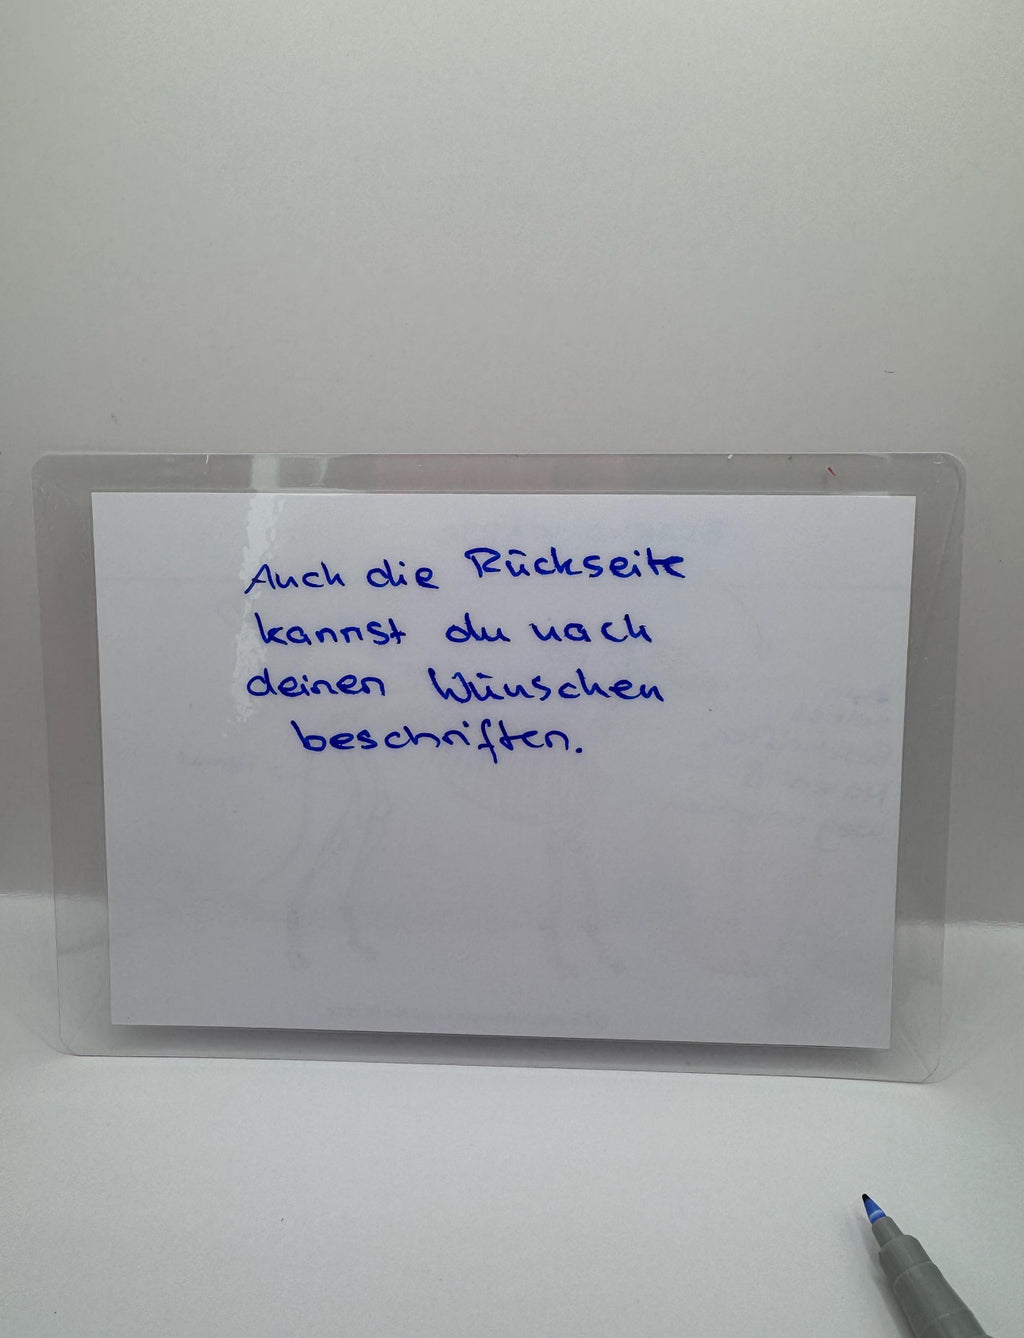 Auch die Rückseite
kannst du nach
deinen Wünschen
beschriften.